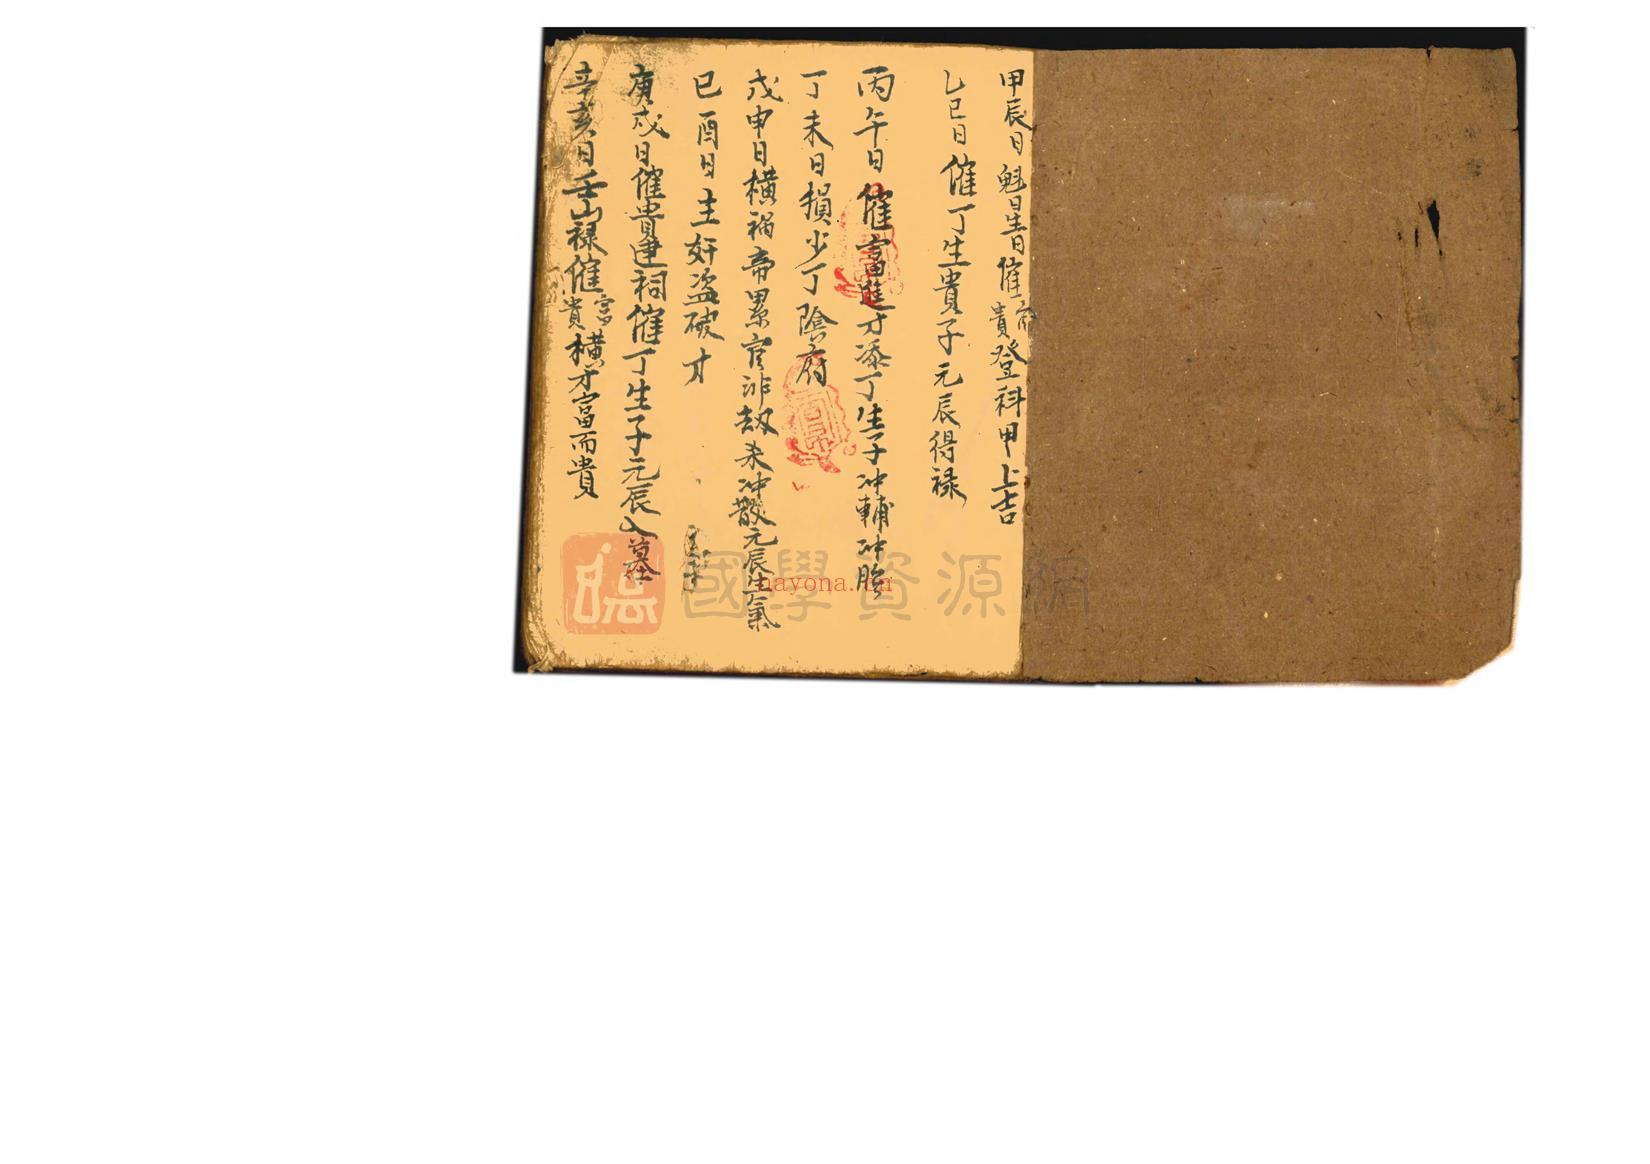 甲辰日魁星昔日催官貴登科甲上吉
乙巳日催丁生貴子元辰得祿
丙午日催富進才添丁生子冲輔冲胎
丁未日損少丁陰府
戊申日橫禍帝累官非劫未冲散元辰生氣
巳酉日主奸盜破才
庚戌日催貴建祠催丁生子元辰入墓
辛亥日壬山祿催富貴橫才富而貴
國學資源網
nayona.cn